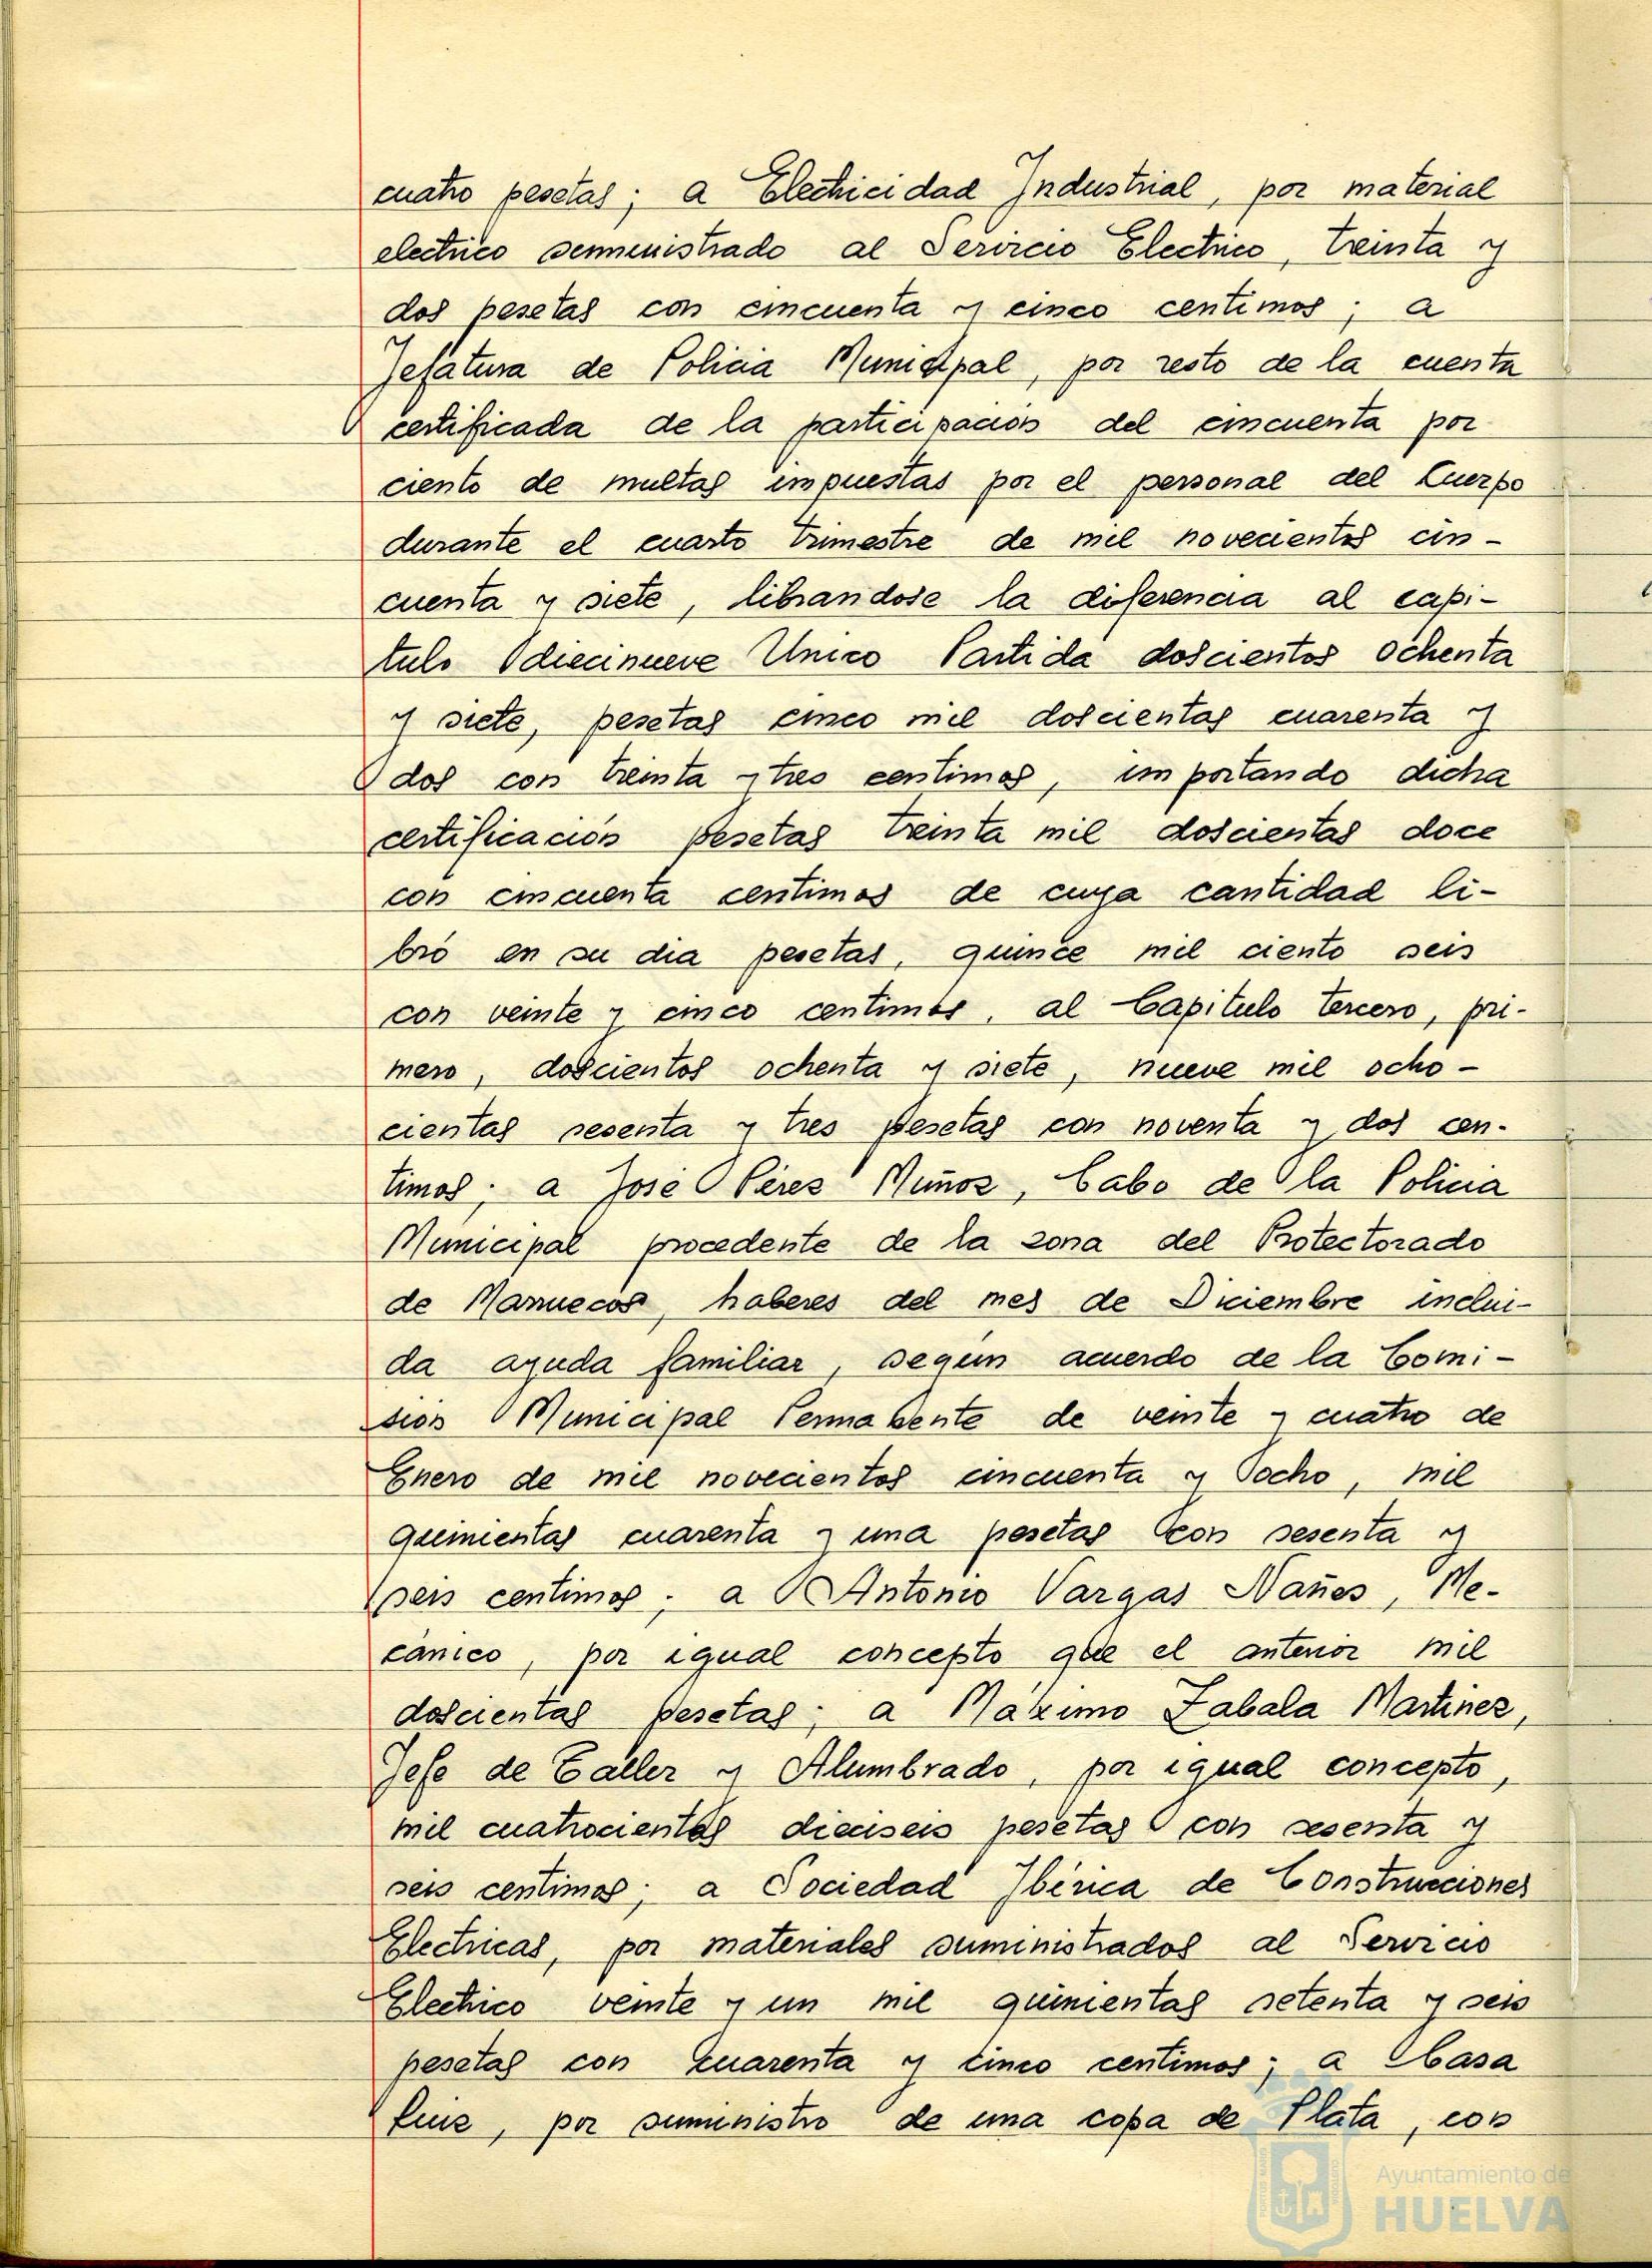 cuatro pesetas; a Electricidad Industrial, por material
electrico suministrado al Servicio Electrico, treinta y
dos pesetas con cincuenta y cinco centimos; a
Jefatura de Policia Municipal, por resto de la cuenta
certificada de la participación del cincuenta por
ciento de multas impuestas por el personal del Cuerpo
durante el cuarto trimestre de mil novecientos cin-
cuenta y siete, librandose la diferencia al capi-
tulo diecinueve Unico Partida doscientos ochenta
y siete, pesetas cinco mil doscientas cuarenta y
dos con treinta y tres centimos, importando dicha
certificación pesetas treinta mil doscientas doce
con cincuenta centimos de cuya cantidad li-
bró en su dia pesetas, quince mil ciento seis
con veinte y cinco centimos, al Capitulo tercero, pri-
mero, doscientos ochenta y siete, nueve mil ocho-
cientas sesenta y tres pesetas con noventa y dos cen-
timos; a José Péres Muñoz, Cabo de la Policia
Municipal procedente de la zona del Protectorado
de Marruecos, haberes del mes de Diciembre inclui-
da ayuda familiar, según acuerdo de la Comi-
sión Municipal Permanente de veinte y cuatro de
Enero de mil novecientos cincuenta y ocho, mil
quinientas cuarenta y una pesetas con sesenta y
seis centimos; a Antonio Vargas Nañes, Me-
cánico, por igual concepto que el anterior mil
doscientas pesetas; a Máximo Zabala Martinez,
Jefe de Taller y Alumbrado, por igual concepto,
mil cuatrocientas dieciseis pesetas con sesenta y
seis centimos; a Sociedad Ibérica de Construcciones
Electricas, por materiales suministrados al Servicio
Electrico veinte y un mil quinientas setenta y seis
pesetas con cuarenta y cinco centimos; a Casa
Ruiz, por suministro de una copa de Plata, con
Ayuntamiento de
HUELVA